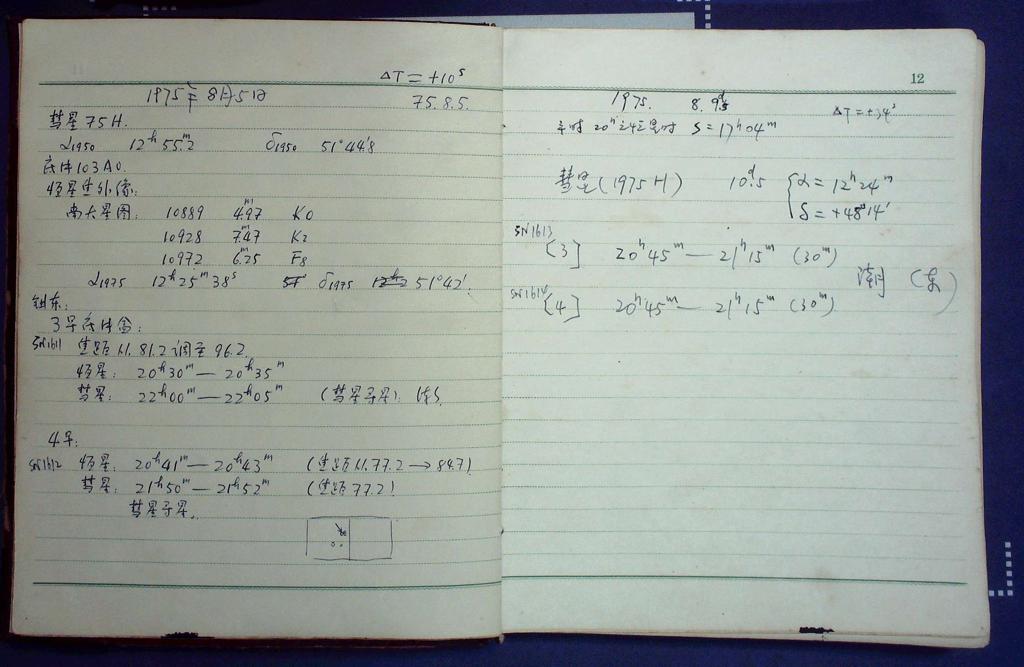 ΔT = +10ˢ
1975年8月5日 75.8.5.
彗星75H.
α₁₉₅₀ 12ʰ55ᵐ.2 δ₁₉₅₀ 51°44′.8
底片103AO.
恒星焦外像:
南天星图: 10889 4ᵐ.97 K0
10928 7ᵐ.47 K2
10972 6ᵐ.25 F8
α₁₉₇₅ 12ʰ25ᵐ38ˢ δ₁₉₇₅ 51°42′.
镜东:
3号底片盒:
SN1611 焦距从81.2调至96.2.
恒星: 20ʰ30ᵐ — 20ʰ35ᵐ
彗星: 22ʰ00ᵐ — 22ʰ05ᵐ (彗星寻星)
4号:
SN1612 恒星: 20ʰ41ᵐ — 20ʰ43ᵐ (焦距从77.2 → 84.7)
彗星: 21ʰ50ᵐ — 21ʰ52ᵐ (焦距77.2)
彗星寻星.
12
1975. 8. 9ᵈ.5
ΔT = +34ˢ
20ʰ 恒星时 S = 17ʰ04ᵐ
彗星(1975H) 10ᵈ.5 α = 12ʰ24ᵐ
δ = +48°14′
SN1613
[3] 20ʰ45ᵐ — 21ʰ15ᵐ (30ᵐ)
(东)
SN1614
[4] 20ʰ45ᵐ — 21ʰ15ᵐ (30ᵐ)